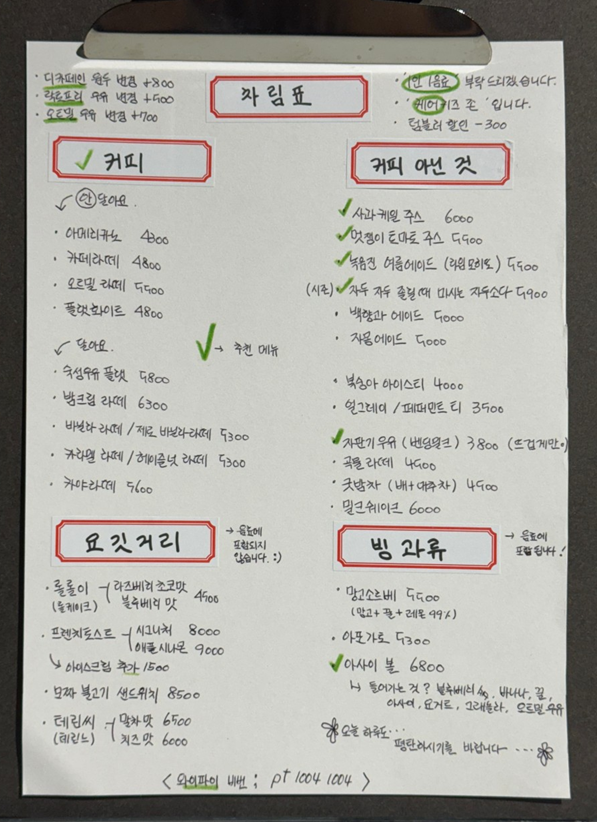 차림표
· 디카페인 원두 변경 +800
· 락토프리 우유 변경 +500
· 오트밀 우유 변경 +700
· 1인 1음료 부탁드리겠습니다.
· '케어키즈 존' 입니다.
· 텀블러 할인 -300
커피
안 달아요.
· 아메리카노 4300
· 카페라떼 4800
· 오트밀 라떼 5500
· 플랫화이트 4800
달아요.
→ 추천 메뉴
· 숙성우유 플랫 5800
· 밤크림 라떼 6300
· 바닐라 라떼 / 제로 바닐라 라떼 5300
· 카라멜 라떼 / 헤이즐넛 라떼 5300
· 카야라떼 5600
커피 아닌 것
사과케일 주스 6000
멋쟁이 토마토 주스 5500
녹음진 여름에이드 (라임모히또) 5500
(시즌) 자두 자두 졸릴 때 마시는 자두소다 5900
· 백향과 에이드 5000
· 자몽에이드 5000
· 복숭아 아이스티 4000
· 얼그레이 / 페퍼민트 티 3500
자판기 우유 (벤딩밀크) 3800 (뜨겁게만)
· 곡물라떼 4500
· 굿밤차 (배+대추차) 4500
· 밀크쉐이크 6000
요깃거리
→ 음료에
포함되지
않습니다. :)
· 롤롤이 (롤케이크)
라즈베리 초코맛
블루베리 맛
4500
· 프렌치토스트
시그니처 8000
애플시나몬 9000
아이스크림 추가 1500
· 모짜 불고기 샌드위치 8500
· 테린씨 (테린느)
말차맛 6500
치즈맛 6000
빙과류
→ 음료에
포함됩니다!
· 망고소르베 5500
(망고+꿀+레몬 99%)
· 아포가토 5300
아사이 볼 6800
↳ 들어가는 것? 블루베리, 바나나, 꿀,
아사이, 요거트, 그래놀라, 오트밀 우유
오늘 하루도...
평탄하시기를 바랍니다~ ...
< 와이파이 비번 ; pt 1004 1004 >